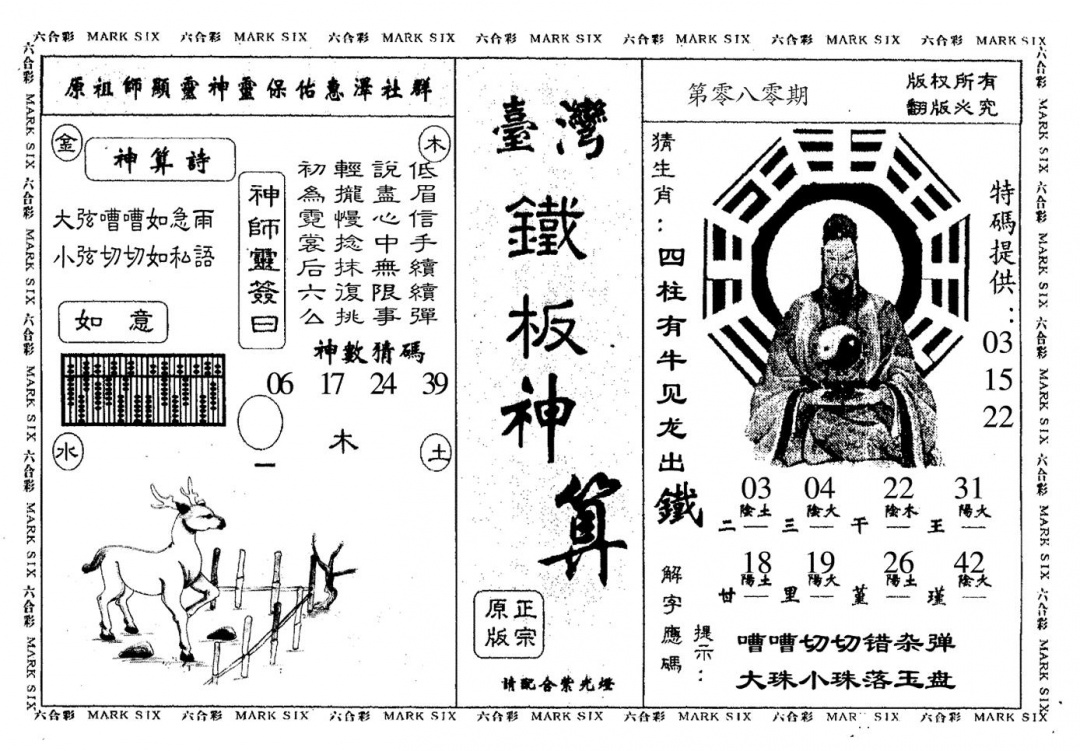 六合彩 MARK SIX 六合彩 MARK SIX 六合彩 MARK SIX 六合彩 MARK SIX 六合彩 MARK SIX 六合彩 MARK SIX 六合彩 MARK SIX
六合彩 MARK SIX 六合彩 MARK SIX 六合彩 MARK SIX 六合彩 MARK SIX 六合彩 MARK SIX
原祖師顯靈神靈保佑惠澤社群
金
木
神算詩
大弦嘈嘈如急雨
小弦切切如私語
如意
神師靈簽曰
低眉信手續續彈
說盡心中無限事
輕攏慢捻抹復挑
初為霓裳后六么
神數猜碼
06 17 24 39
水
一
木
土
臺灣
鐵板神算
正宗
原版
請配合紫光燈
第零八零期
版权所有
翻版必究
猜生肖：四柱有牛见龙出鐵
特碼提供：
03
15
22
03 04 22 31
陰土 陰火 陰木 陽火
二 三 干 王
18 19 26 42
陽土 陽火 陽土 陰火
廿 里 堇 瑾
解字應碼
提示：
嘈嘈切切错杂弹
大珠小珠落玉盘
六合彩 MARK SIX 六合彩 MARK SIX 六合彩 MARK SIX 六合彩 MARK SIX 六合彩 MARK SIX
六合彩 MARK SIX 六合彩 MARK SIX 六合彩 MARK SIX 六合彩 MARK SIX 六合彩 MARK SIX 六合彩 MARK SIX 六合彩 MARK SIX